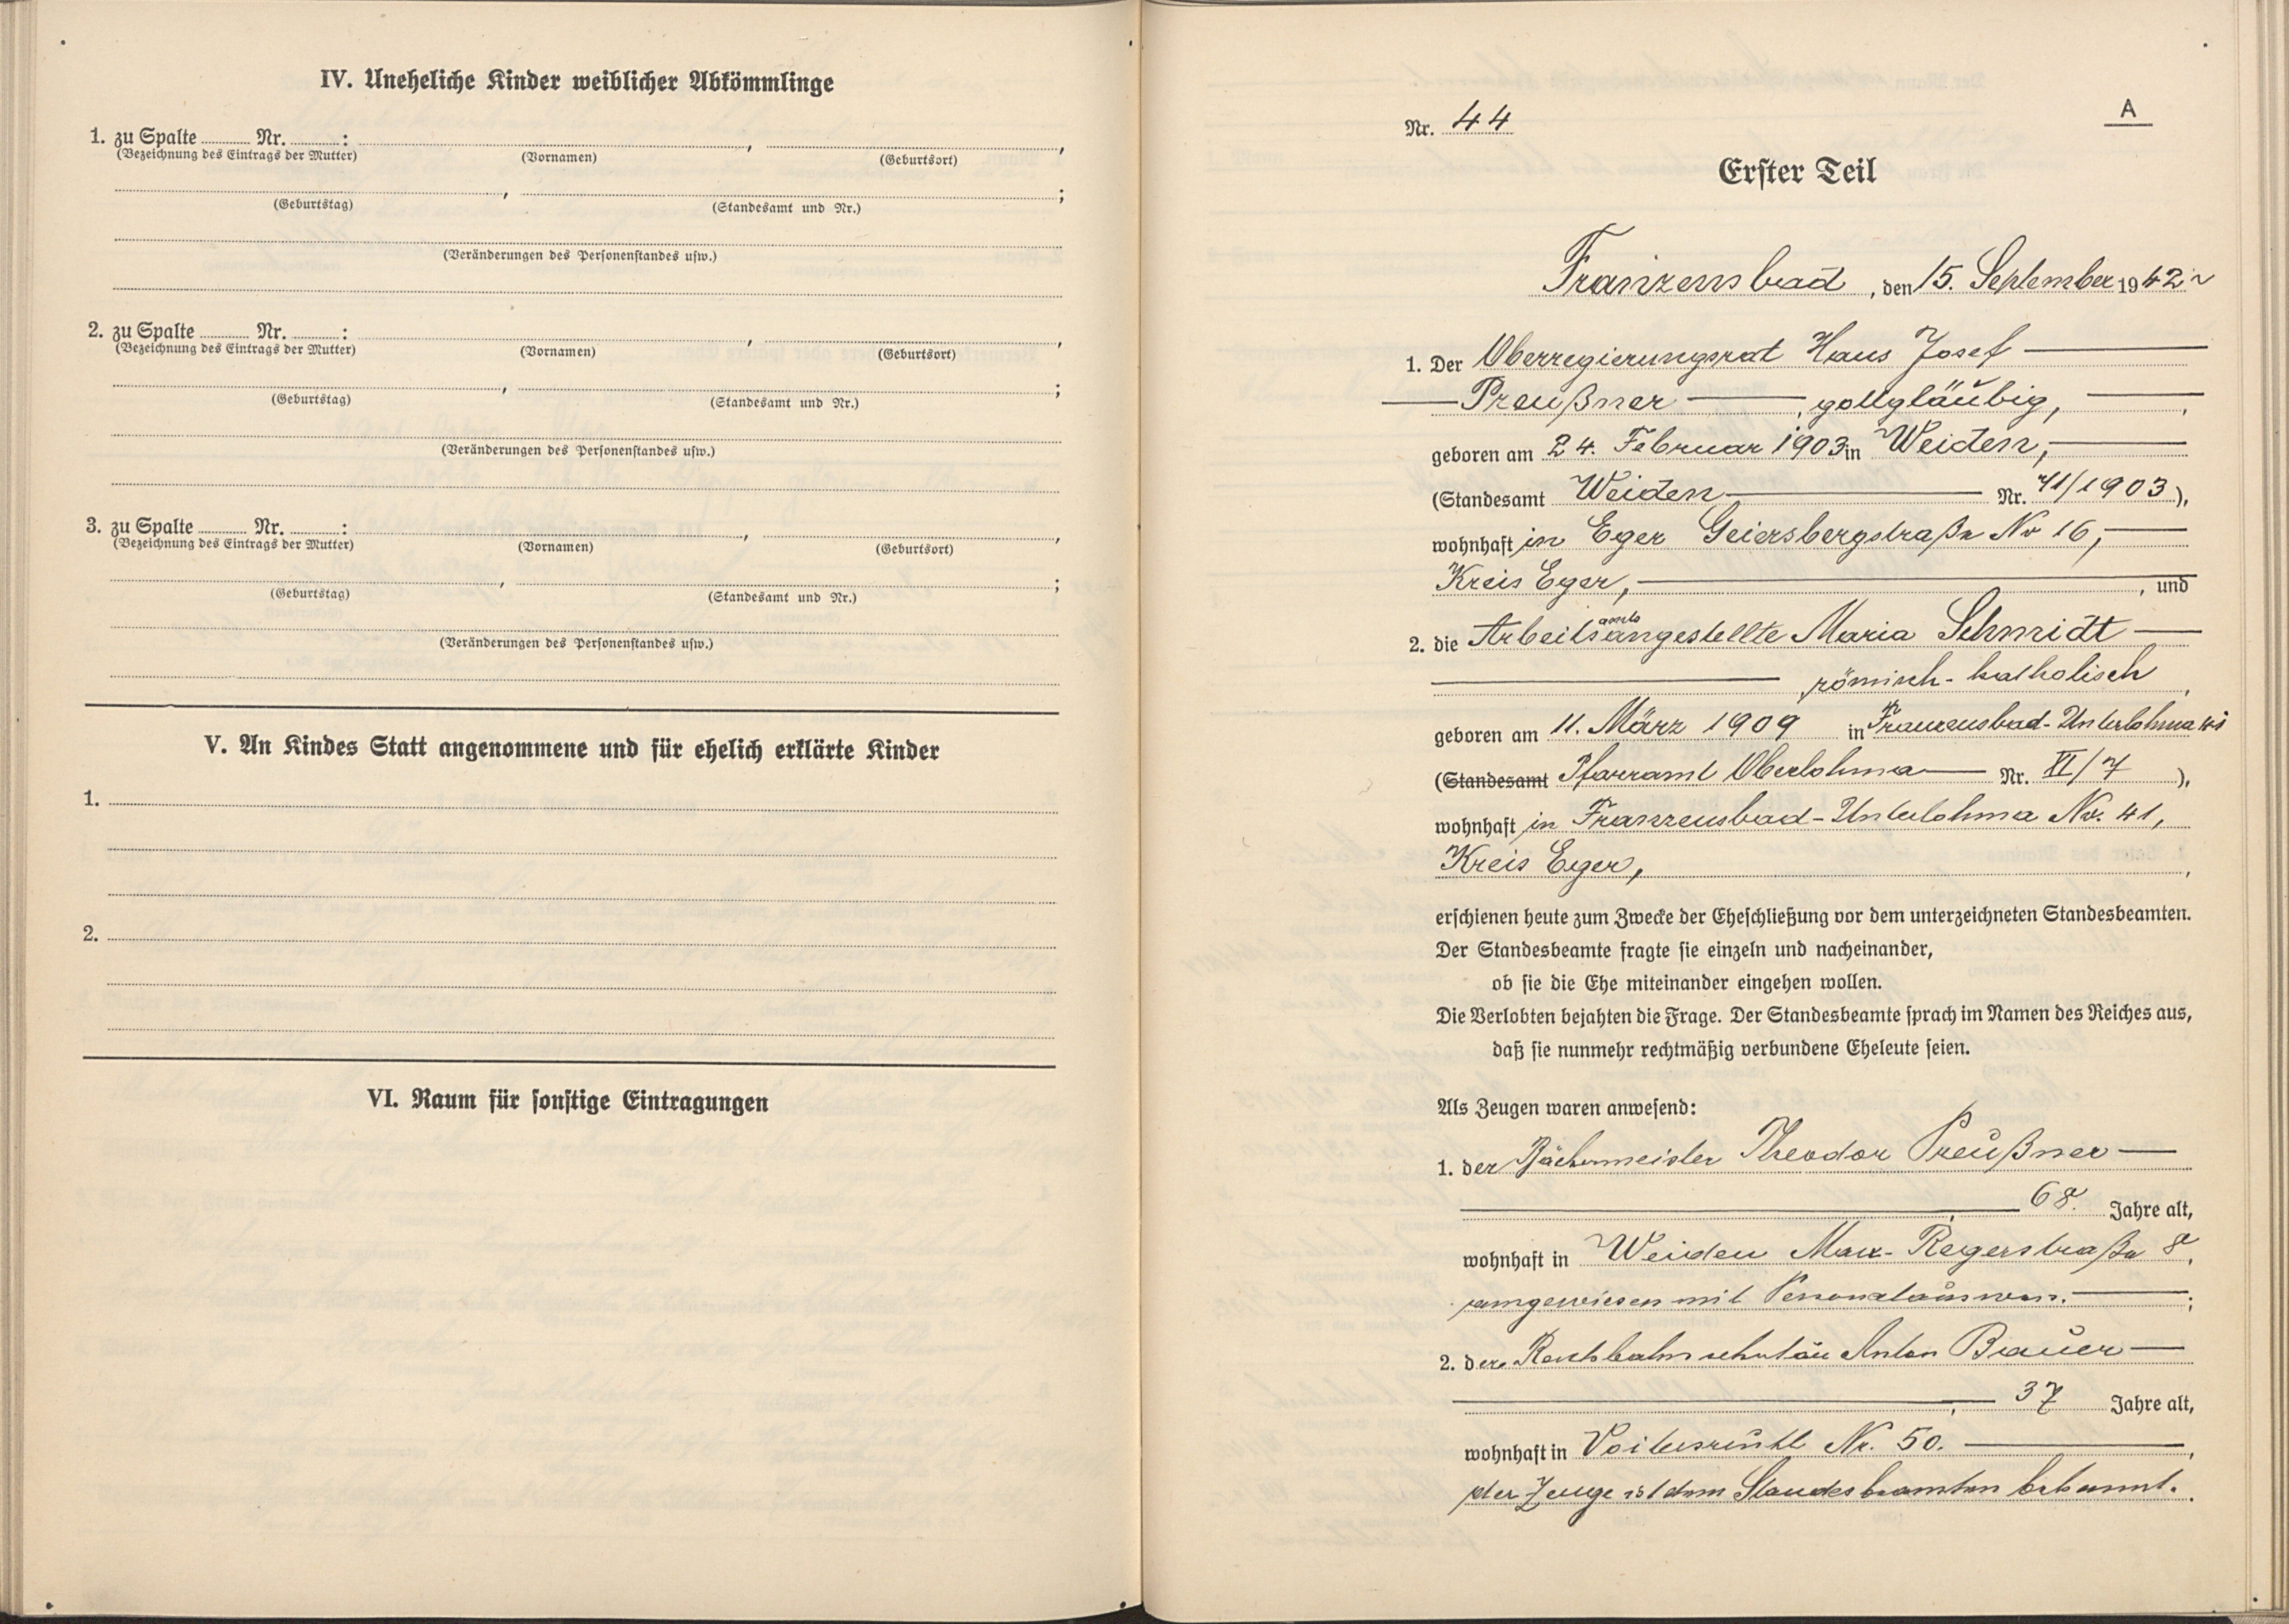 IV. Uneheliche Kinder weiblicher Abkömmlinge
1. zu Spalte ........ Nr. ........: , ,
(Bezeichnung des Eintrags der Mutter) (Vornamen) (Geburtsort)
, ;
(Geburtstag) (Standesamt und Nr.)
(Veränderungen des Personenstandes usw.)
2. zu Spalte ........ Nr. ........: , ,
(Bezeichnung des Eintrags der Mutter) (Vornamen) (Geburtsort)
, ;
(Geburtstag) (Standesamt und Nr.)
(Veränderungen des Personenstandes usw.)
3. zu Spalte ........ Nr. ........: , ,
(Bezeichnung des Eintrags der Mutter) (Vornamen) (Geburtsort)
, ;
(Geburtstag) (Standesamt und Nr.)
(Veränderungen des Personenstandes usw.)
V. An Kindes Statt angenommene und für ehelich erklärte Kinder
1.
2.
VI. Raum für sonstige Eintragungen
A
Nr. 44
Erster Teil
Franzensbad, den 15. September 1942
1. Der Oberregierungsrat Hans Josef
Preußner, gottgläubig,
geboren am 24. Februar 1903 in Weiden,
(Standesamt Weiden Nr. 71/1903),
wohnhaft in Eger Geiersbergstraße No 16,
Kreis Eger, , und
2. die Arbeitsamtsangestellte Maria Schmidt
römisch-katholisch,
geboren am 11. März 1909 in Franzensbad-Unterlohma 41
(Standesamt Pfarramt Oberlohma Nr. XI/7),
wohnhaft in Franzensbad-Unterlohma No. 41,
Kreis Eger,
erschienen heute zum Zwecke der Eheschließung vor dem unterzeichneten Standesbeamten.
Der Standesbeamte fragte sie einzeln und nacheinander,
ob sie die Ehe miteinander eingehen wollen.
Die Verlobten bejahten die Frage. Der Standesbeamte sprach im Namen des Reiches aus,
daß sie nunmehr rechtmäßig verbundene Eheleute seien.
Als Zeugen waren anwesend:
1. der Bäckermeister Theodor Preußner
68. Jahre alt,
wohnhaft in Weiden Max-Regerstraße 8,
ausgewiesen mit Personalausweis. ;
2. der Reichsbahnsekretär Anton Brauer
37 Jahre alt,
wohnhaft in Voitersreuth Nr. 50.
der Zeuge ist dem Standesbeamten bekannt.